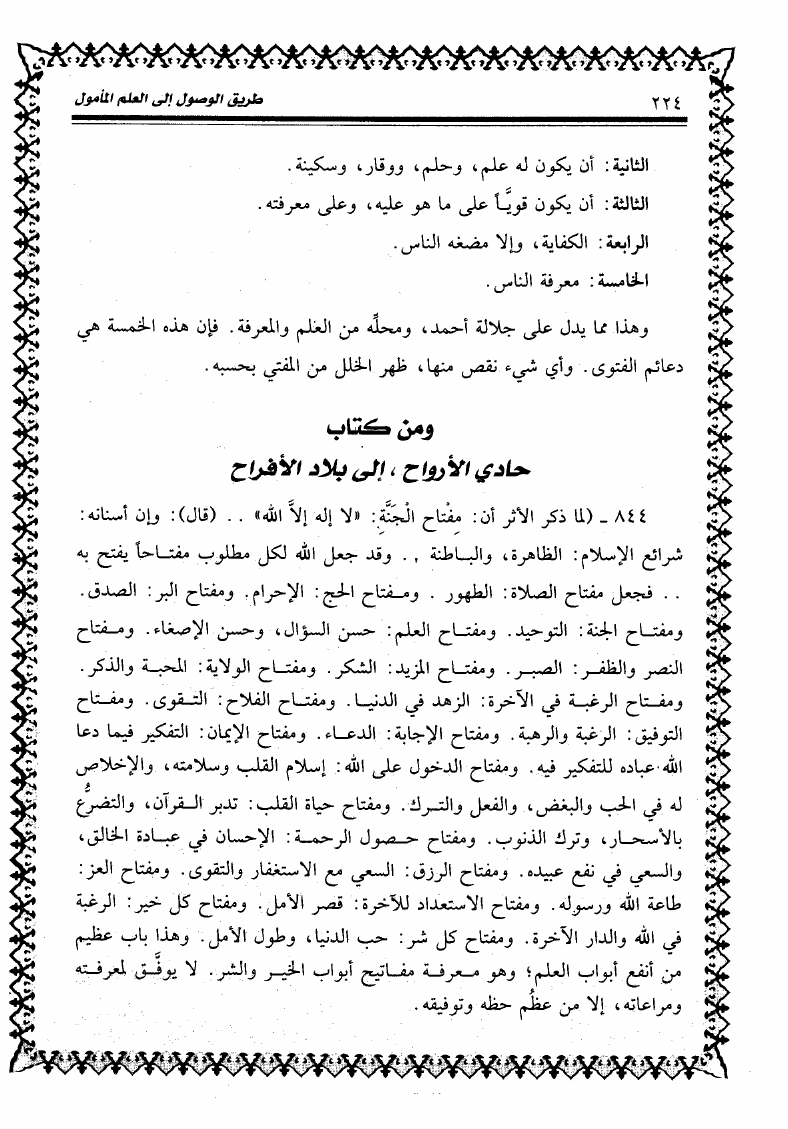 ٢٢٤ طريق الوصول إلى العلم المأمول
الثانية: أن يكون له علم، وحلم، ووقار، وسكينة.
الثالثة: أن يكون قويَّاً على ما هو عليه، وعلى معرفته.
الرابعة: الكفاية، وإلا مضغه الناس.
الخامسة: معرفة الناس.
وهذا مما يدل على جلالة أحمد، ومحلِّه من العلم والمعرفة. فإن هذه الخمسة هي
دعائم الفتوى. وأي شيء نقص منها، ظهر الخلل من المفتي بحسبه.
ومن كتاب
حادي الأرواح، إلى بلاد الأفراح
٨٤٤ ـ (لما ذكر الأثر أن: مِفْتاح الْجَنَّةِ: «لا إله إلاَّ الله» . . (قال): وإن أسنانه:
شرائع الإسلام: الظاهرة، والبـاطنة . . وقد جعل الله لكل مطلوب مفتـاحاً يفتح به
. . فجعل مفتاح الصلاة: الطهور . ومـفتاح الحج: الإحرام. ومفتاح البر: الصدق.
ومفتـاح الجنة: التوحيد. ومفتـاح العلم: حسن السؤال، وحسن الإصغاء. ومـفتاح
النصر والظفـر: الصبـر. ومفتـاح المزيد: الشكر. ومفتـاح الولاية: المحبـة والذكر.
ومفـتاح الرغبـة في الآخرة: الزهد في الدنيـا. ومفتـاح الفلاح: التـقوى. ومفـتاح
التوفيق: الرغبة والرهبة. ومفتاح الإجابة: الدعـاء. ومفتاح الإيمان: التفكير فيما دعا
الله عباده للتفكير فيه. ومفتاح الدخول على الله: إسلام القلب وسلامته، والإخلاص
له في الحب والبغض، والفعل والتـرك. ومفتاح حياة القلب: تدبر الـقرآن، والتضرُّع
بالأسحـار، وترك الذنوب. ومفتاح حـصول الرحمـة: الإحسان في عبـادة الخالق،
والسعي في نفع عبيده. ومفتاح الرزق: السعي مع الاستغفار والتقوى. ومفتاح العز:
طاعة الله ورسوله. ومفتاح الاستعداد للآخرة: قصر الأمل. ومفتاح كل خير: الرغبة
في الله والدار الآخرة. ومفتاح كل شر: حب الدنيا، وطول الأمل. وهذا باب عظيم
من أنفع أبواب العلم؛ وهو مـعرفـة مفـاتيح أبواب الخيـر والشر. لا يوفَّـق لمعرفـته
ومراعاته، إلا من عظُم حظه وتوفيقه.